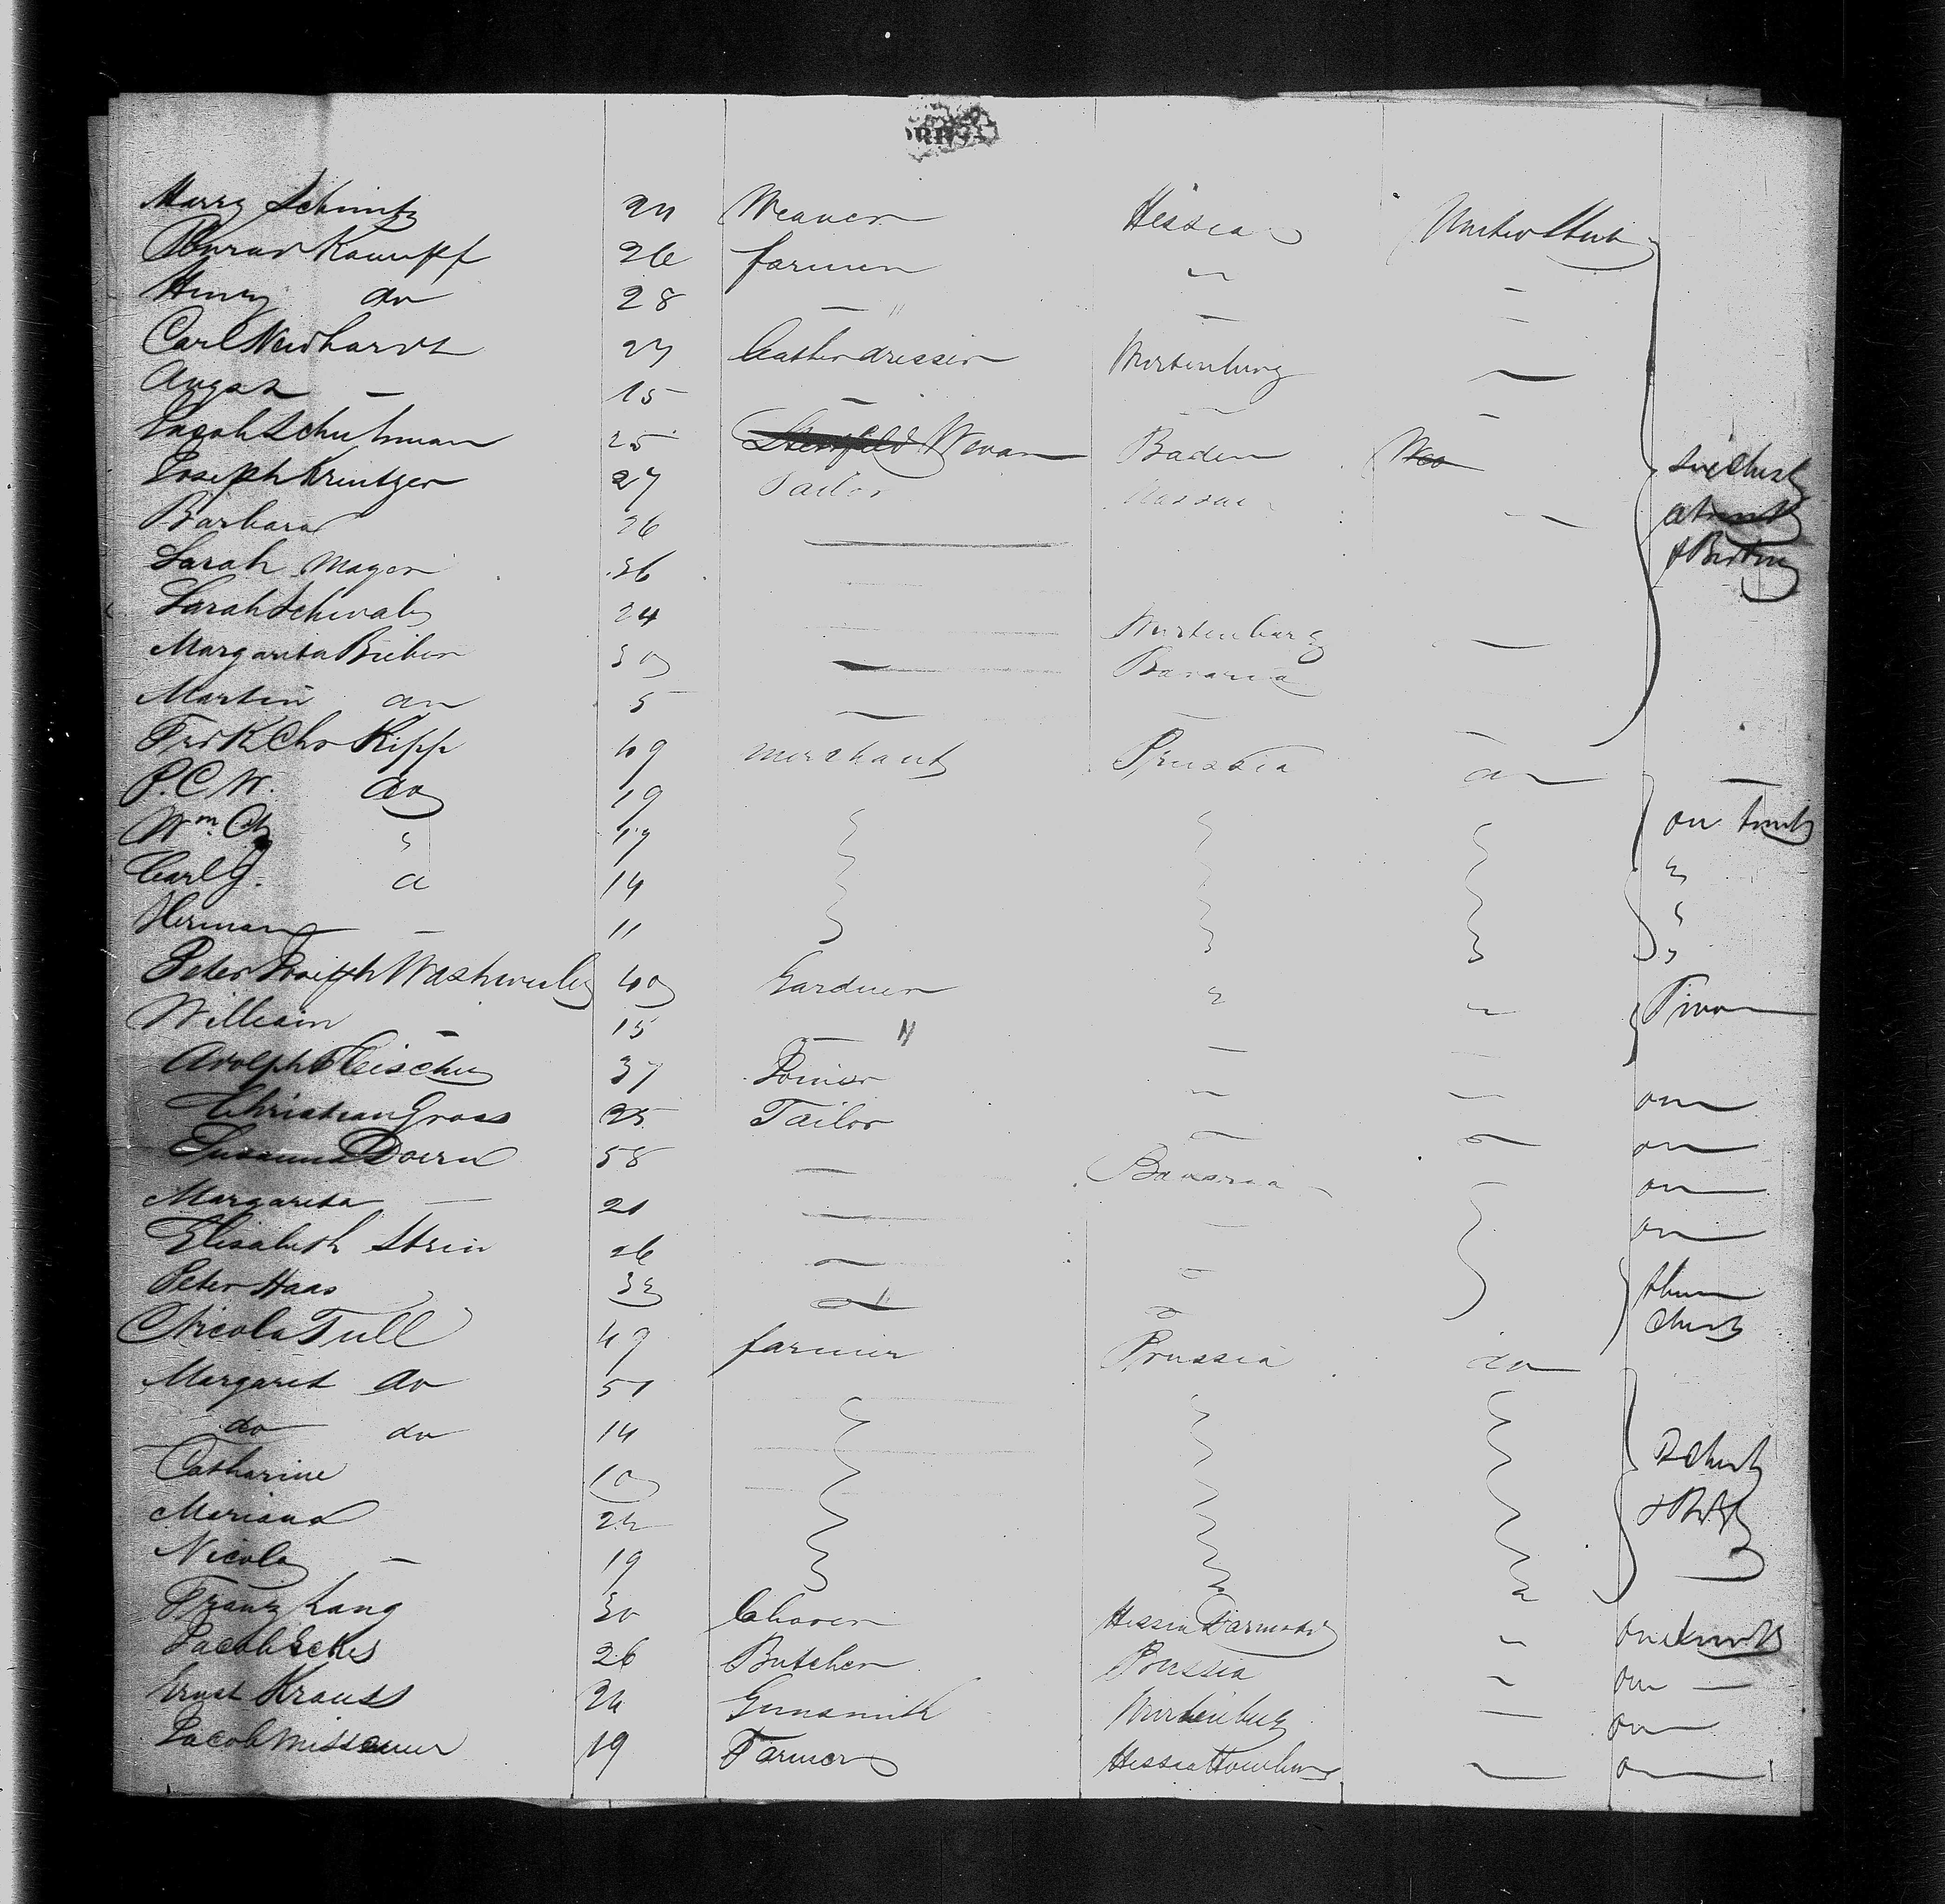 Harry Schmitz 24 Weaver Hessia United Stat
Conrad Kaumpff 26 farmer "
Henry do 28 — " — —
Carl Neidhardt 27 leatherdresser Wirtenburg —
August — 15 — — —
Jacob Schuhman 25 Weaver Baden
Joseph Kreutzer 27 Tailor Nassau —
Barbara 26
Sarah Mayer 36
Sarah Schwab 24 Wirtenburg —
Margareta Bieber 30 — Bavaria
Martin do 5 — — —
Fr. K Chr Kipp 49 merchant Prussia do —
P. C. W. do 19 on trunk
Wm. Ch " 17 "
Carl G. do 14 "
Herman — 11 "
Peter Joseph 40 Gardner " " Two
William — 15 — " — —
Adolph Fleischer 37 Joiner " — one
Christian Gross 25 Tailor — — one
Susanna Doern 58 — Bavaria one
Margareta — 21 — — one
Elisabeth Stein 26 —
Peter Haas 33 three
Nicola Tull 49 farmer Prussia do chest
Margaret do 51
do do 14
Catharine 10 2 Chest
Mariana 22
Nicola — 19
Franz Lang 30 Hessia Darmstad " one trunk
Jacob Eckes 26 Butcher Prussia " one —
Ernst Krauss 24 Gunsmith Wirtenburg — one
Jacob Missemer 19 Farmer Hessia Homburg — one